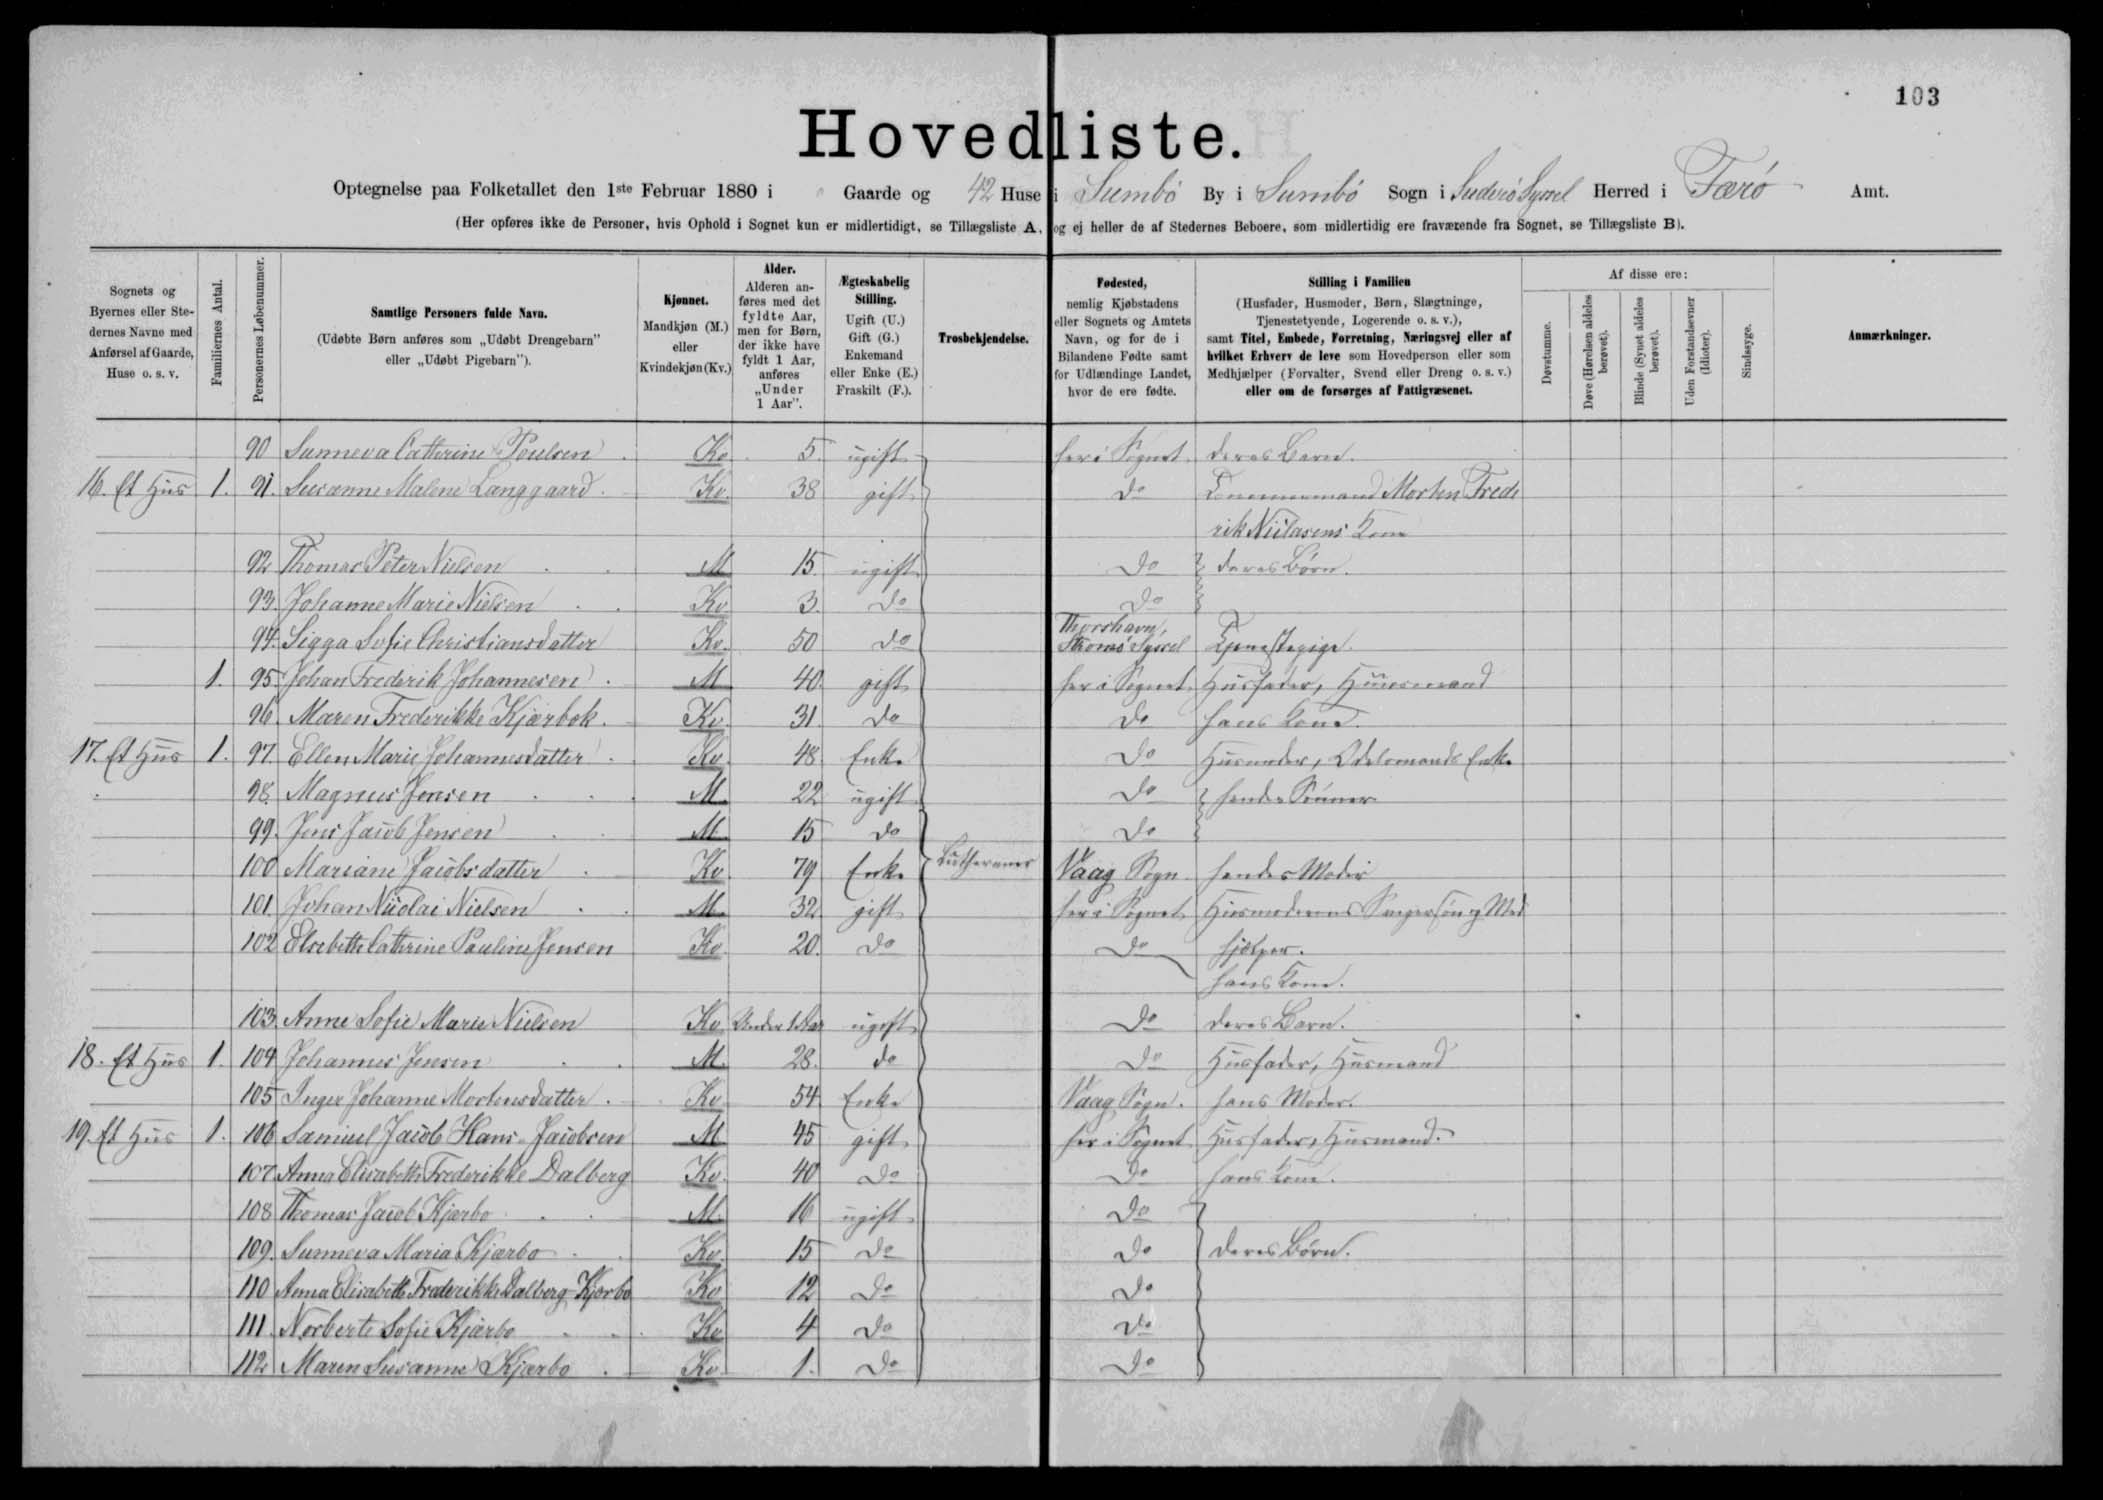 103
Hovedliste.
Optegnelse paa Folketallet den 1ste Februar 1880 i Gaarde og 42 Huse i Sumbö By i Sumbö Sogn i Suderö Syssel Herred i Færö Amt.
(Her opføres ikke de Personer, hvis Ophold i Sognet kun er midlertidigt, se Tillægsliste A, og ej heller de af Stedernes Beboere, som midlertidig ere fraværende fra Sognet, se Tillægsliste B).
Sognets og Byernes eller Stedernes Navne med Anførsel af Gaarde, Huse o. s. v.
Familiernes Antal.
Personernes Løbenummer.
Samtlige Personers fulde Navn.
(Udøbte Børn anføres som „Udøbt Drengebarn" eller „Udøbt Pigebarn").
Kjønnet.
Mandkjøn (M.) eller Kvindekjøn (Kv.)
Alder.
Alderen anføres med det fyldte Aar, men for Børn, der ikke have fyldt 1 Aar, anføres „Under 1 Aar".
Ægteskabelig Stilling.
Ugift (U.) Gift (G.) Enkemand eller Enke (E.) Fraskilt (F.).
Trosbekjendelse.
Fødested,
nemlig Kjøbstadens eller Sognets og Amtets Navn, og for de i Bilandene Fødte samt for Udlændinge Landet, hvor de ere fødte.
Stilling i Familien
(Husfader, Husmoder, Børn, Slægtninge, Tjenestetyende, Logerende o. s. v.),
samt Titel, Embede, Forretning, Næringsvej eller af hvilket Erhverv de leve som Hovedperson eller som Medhjælper (Forvalter, Svend eller Dreng o. s. v.) eller om de forsørges af Fattigvæsenet.
Af disse ere:
Døvstumme.
Døve (Hørelsen aldeles berøvet).
Blinde (Synet aldeles berøvet).
Uden Forstandsevner (Idioter).
Sindssyge.
Anmærkninger.
90 Sunneva Cathrine Poulsen Kv. 5 ugift her i Sognet deres Barn.
16. Et Hus 1. 91. Susanne Malene Langgaard Kv. 38 gift do Morten Frede
rik Kone
92 Thomas Peter Nielsen M 15 ugift do deres Börn.
93. Johanne Marie Nielsen Kv 3 do do
94. Sigga Sofie Christiansdatter Kv. 50 do Thorshavn, Syssel Tjenestepige.
1. 95 Johan Frederik Johannesen M 40 gift her i Sognet Husfader, Huusmand
96 Maren Frederikke Kjærbok Kv. 31 do do hans Kone.
17. Et Hus 1. 97 Ellen Marie Johannesdatter Kv. 48 Enke do Husmoder, Odelsmands Enke
98. Magnus Jensen M. 22 ugift do hendes Sönner
99. Jens Jacob Jensen M. 15 do do
Lutheraner
100 Mariane Jacobsdatter Kv 79 Enke Vaag Sogn hendes Moder
101 Johan Nicolai Nielsen M. 32 gift her i Sognet Husmoderens Svigersön og Med
102 Elsebette Cathrine Pauline Jensen Kv. 20 do do hjælper.
hans Kone.
103. Anne Sofie Marie Nielsen Kv Under 1 Aar ugift do deres Barn.
18. Et Hus 1. 104 Johannes Jensen M. 28. do do Husfader, Husmand
105 Inger Johanne Mortensdatter Kv. 54 Enke Vaag Sogn. hans Moder.
19. Et Hus 1. 106 Samuel Jacob Hans Jacobsen M 45 gift her i Sognet Husfader, Husmand.
107 Anna Elisabeth Frederikke Dalberg Kv. 40 do do hans Kone.
108 Thomas Jacob Kjærbo M. 16 ugift do
109. Sunneva Maria Kjærbo Kv. 15 do do deres Börn.
110 Anna Elisabeth Frederikke Dalberg Kjærbo Kv 12 do do
111. Norberte Sofie Kjærbo Kv 4 do do
112 Maren Susanne Kjærbo Kv. 1. do do